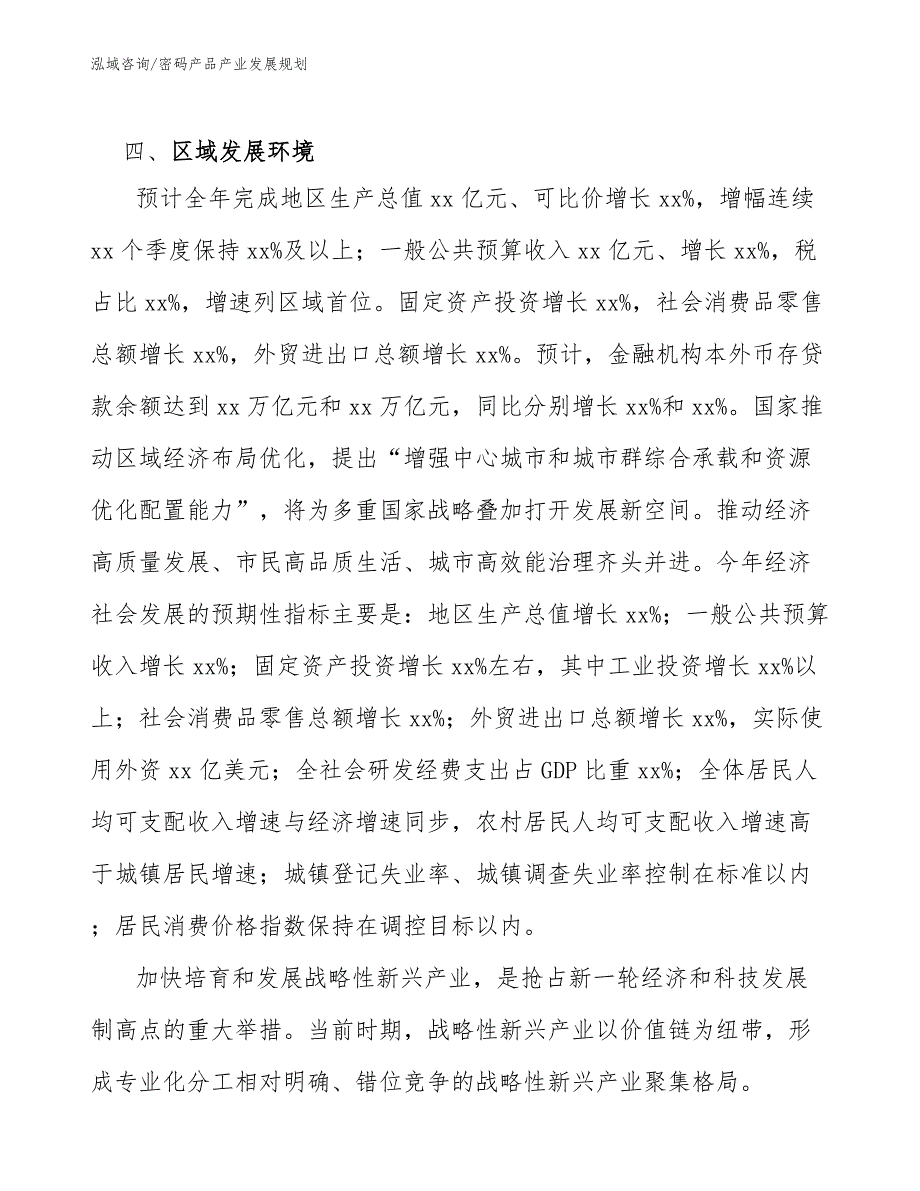 泓域咨询/密码产品产业发展规划
四、区域发展环境
预计全年完成地区生产总值 xx 亿元、可比价增长 xx%，增幅连续
xx 个季度保持 xx%及以上；一般公共预算收入 xx 亿元、增长 xx%，税
占比 xx%，增速列区域首位。固定资产投资增长 xx%，社会消费品零售
总额增长 xx%，外贸进出口总额增长 xx%。预计，金融机构本外币存贷
款余额达到 xx 万亿元和 xx 万亿元，同比分别增长 xx%和 xx%。国家推
动区域经济布局优化，提出“增强中心城市和城市群综合承载和资源
优化配置能力”，将为多重国家战略叠加打开发展新空间。推动经济
高质量发展、市民高品质生活、城市高效能治理齐头并进。今年经济
社会发展的预期性指标主要是：地区生产总值增长 xx%；一般公共预算
收入增长 xx%；固定资产投资增长 xx%左右，其中工业投资增长 xx%以
上；社会消费品零售总额增长 xx%；外贸进出口总额增长 xx%，实际使
用外资 xx 亿美元；全社会研发经费支出占 GDP 比重 xx%；全体居民人
均可支配收入增速与经济增速同步，农村居民人均可支配收入增速高
于城镇居民增速；城镇登记失业率、城镇调查失业率控制在标准以内
；居民消费价格指数保持在调控目标以内。
加快培育和发展战略性新兴产业，是抢占新一轮经济和科技发展
制高点的重大举措。当前时期，战略性新兴产业以价值链为纽带，形
成专业化分工相对明确、错位竞争的战略性新兴产业聚集格局。